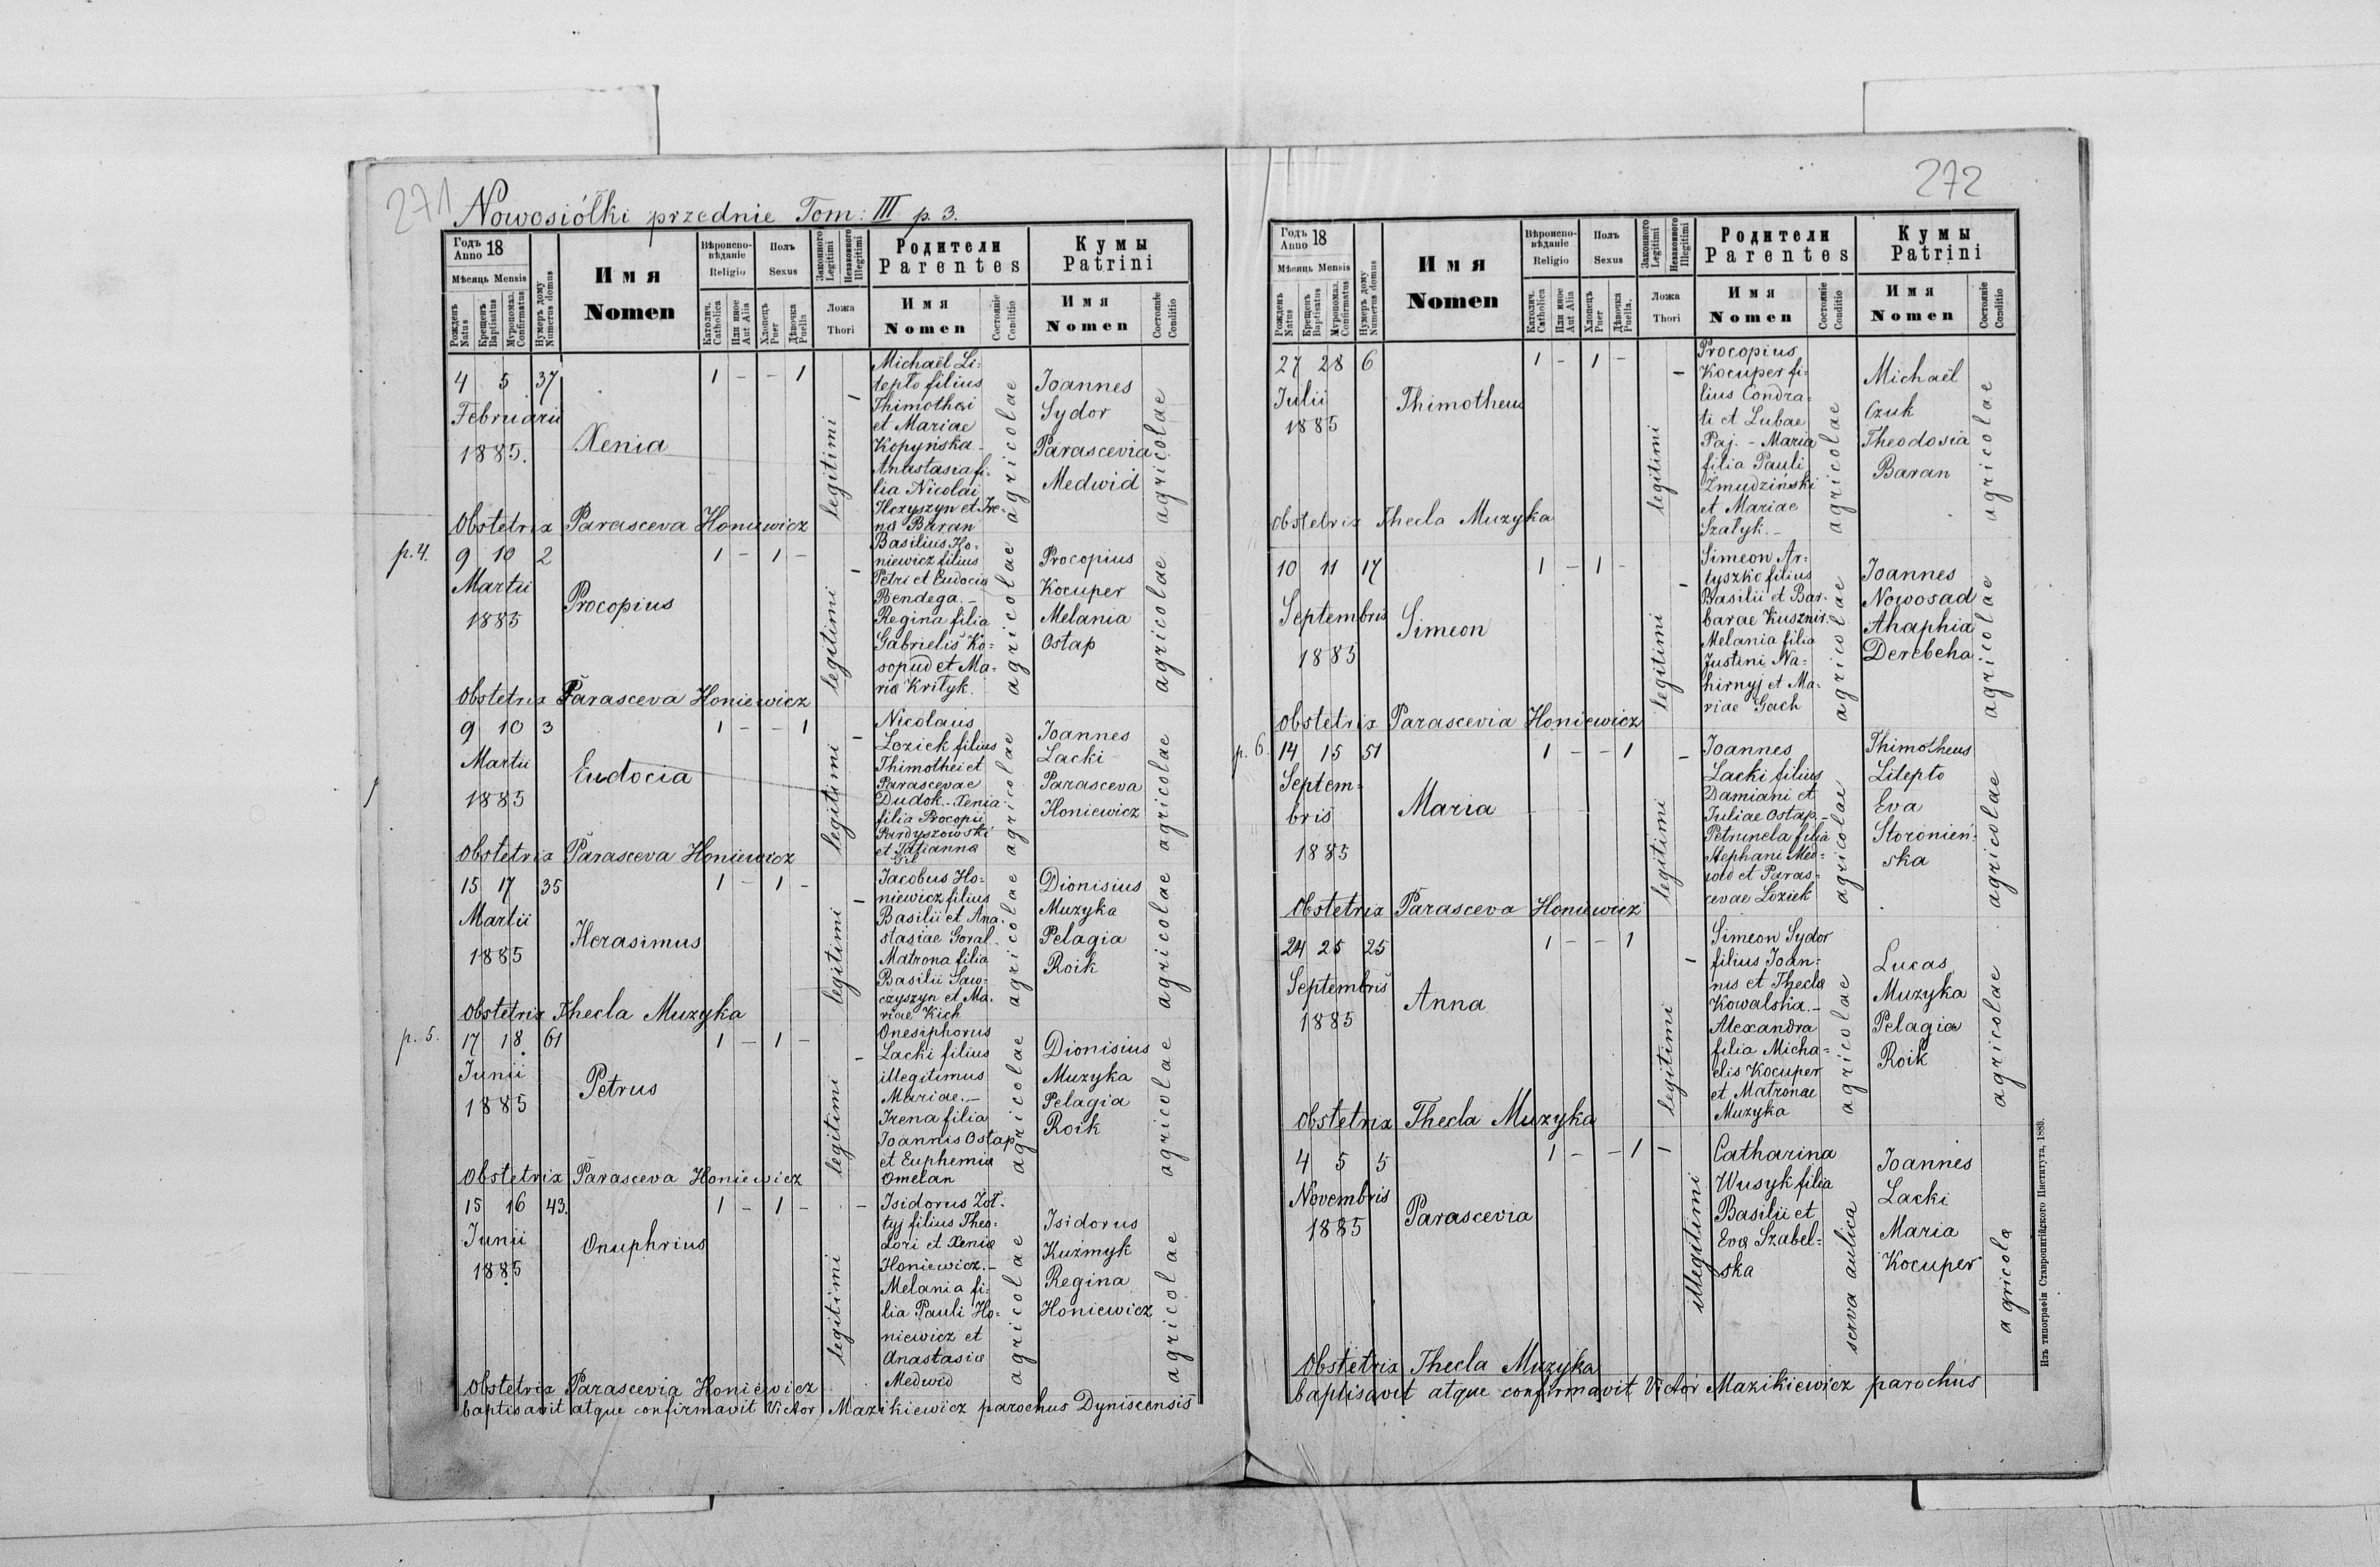 271
Nowosiółki przednie Tom: III p. 3.
Годъ Anno 18
Мѣсяць Mensis
Рожденъ Natus
Крещенъ Baptisatus
Мѵропомаз. Confirmatus
Нумеръ дому Numerus domus
Имя
Nomen
Вѣроиспо-
вѣданіе
Religio
Католич. Catholica
Или иное Aut Alia
Полъ
Sexus
Хлопецъ Puer
Дѣвочка Puella
Законного Legitimi
Незаконного Illegitimi
Ложа
Thori
Родители
Parentes
Имя
Nomen
Состояніе Conditio
Кумы
Patrini
Имя
Nomen
Состояніе Conditio
4 5 37
Februarii
1885.
Xenia
1 - - 1
legitimi
Michaël Li-
tepło filius
Thimothei
et Mariae
Kopyńska -
Anastasia fi-
lia Nicolai
Ilczyszyn et Ire-
na Baran
agricolae
Joannes
Sydor
Parascevia
Medwid
agricolae
Obstetrix Parasceva Honiewicz
p. 4.
9 10 2
Martii
1885
Procopius
1 - 1 -
legitimi
Basilius Ho-
niewicz filius
Petri et Eudocia
Bendega. -
Regina filia
Gabrielis Ko-
sopud et Ma-
ria Krityk.
agricolae
Procopius
Kocuper
Melania
Ostap
agricolae
Obstetrix Parasceva Honiewicz
9 10 3
Martii
1885
Eudocia
1 - - 1
legitimi
Nicolaus
Loziek filius
Thimothei et
Parascevae
Dudok. - Xenia
filia Procopii
Pardyszowski
et Tatianna
Gil
agricolae
Joannes
Lacki
Parasceva
Honiewicz
agricolae
Obstetrix Parasceva Honiewicz
15 17 35
Martii
1885
Herasimus
1 - 1 -
legitimi
Jacobus Ho-
niewicz filius
Basilii et Ana-
stasiae Goral.
Matrona filia
Basilii Saw-
czyszyn et Ma-
riae Kich
agricolae
Dionisius
Muzyka
Pelagia
Roik
agricolae
Obstetrix Thecla Muzyka
p. 5.
17 18 61
Junii
1885
Petrus
1 - 1 -
legitimi
Onesiphorus
Lacki filius
illegitimus
Mariae. -
Irena filia
Joannis Ostap
et Euphemia
Omelan
agricolae
Dionisius
Muzyka
Pelagia
Roik
agricolae
Obstetrix Parasceva Honiewicz
15 16 43.
Junii
1885
Onuphrius
1 - 1 -
legitimi
Isidorus Żoł-
tyj filius Theo-
dori et Xenia
Honiewicz. -
Melania fi-
lia Pauli Ho-
niewicz et
Anastasia
Medwid
agricolae
Isidorus
Kuźmyk
Regina
Honiewicz
agricolae
Obstetrix Parascevia Honiewicz
baptisavit atque confirmavit Victor Mazikiewicz parochus Dyniscensis
272
Годъ Anno 18
Мѣсяць Mensis
Рожденъ Natus
Крещенъ Baptisatus
Мѵропомаз. Confirmatus
Нумеръ дому Numerus domus
Имя
Nomen
Вѣроиспо-
вѣданіе
Religio
Католич. Catholica
Или иное Aut Alia
Полъ
Sexus
Хлопецъ Puer
Дѣвочка Puella.
Законного Legitimi
Незаконного Illegitimi
Ложа
Thori
Родители
Parentes
Имя
Nomen
Состояніе Conditio
Кумы
Patrini
Имя
Nomen
Состояніе Conditio
27 28 6
Julii
1885
Thimotheus
1 - 1 -
legitimi
Procopius
Kocuper fi-
lius Condra-
ti et Lubae
Paj. - Maria
filia Pauli
Zmudziński
et Mariae
Szatyk. -
agricolae
Michaël
Czuk
Theodosia
Baran
agricolae
Obstetrix Thecla Muzyka
10 11 17
Septembris
1885
Simeon
1 - 1 -
legitimi
Simeon Ar-
tyszko filius
Basilii et Bar-
barae Kusznir.
Melania filia
Justini Na-
hirnyj et Ma-
riae Gach
agricolae
Joannes
Nowosad
Ahaphia
Derebeha
agricolae
Obstetrix Parascevia Honiewicz
p. 6.
14 15 51
Septem-
bris
1885
Maria
1 - - 1
legitimi
Joannes
Lacki filius
Damiani et
Juliae Ostap. -
Petrunela filia
Stephani Med-
wid et Paras-
cevae Loziek
agricolae
Thimotheus
Litepło
Eva
Storonień-
ska
agricolae
Obstetrix Parasceva Honiewicz
24 25 25
Septembris
1885
Anna
1 - - 1
legitimi
Simeon Sydor
filius Joan-
nis et Thecla
Kowalska. -
Alexandra
filia Micha-
elis Kocuper
et Matronae
Muzyka
agricolae
Lucas
Muzyka
Pelagia
Roik
agricolae
Obstetrix Thecla Muzyka
4 5 5
Novembris
1885
Parascevia
1 - - 1 1
illegitimi
Catharina
Wusyk filia
Basilii et
Eva Szabel-
ska
serva aulica
Joannes
Lacki
Maria
Kocuper
agricola
Obstetrix Thecla Muzyka
baptisavit atque confirmavit Victor Mazikiewicz parochus
Изъ типографіи Ставропигійского Института, 1883.